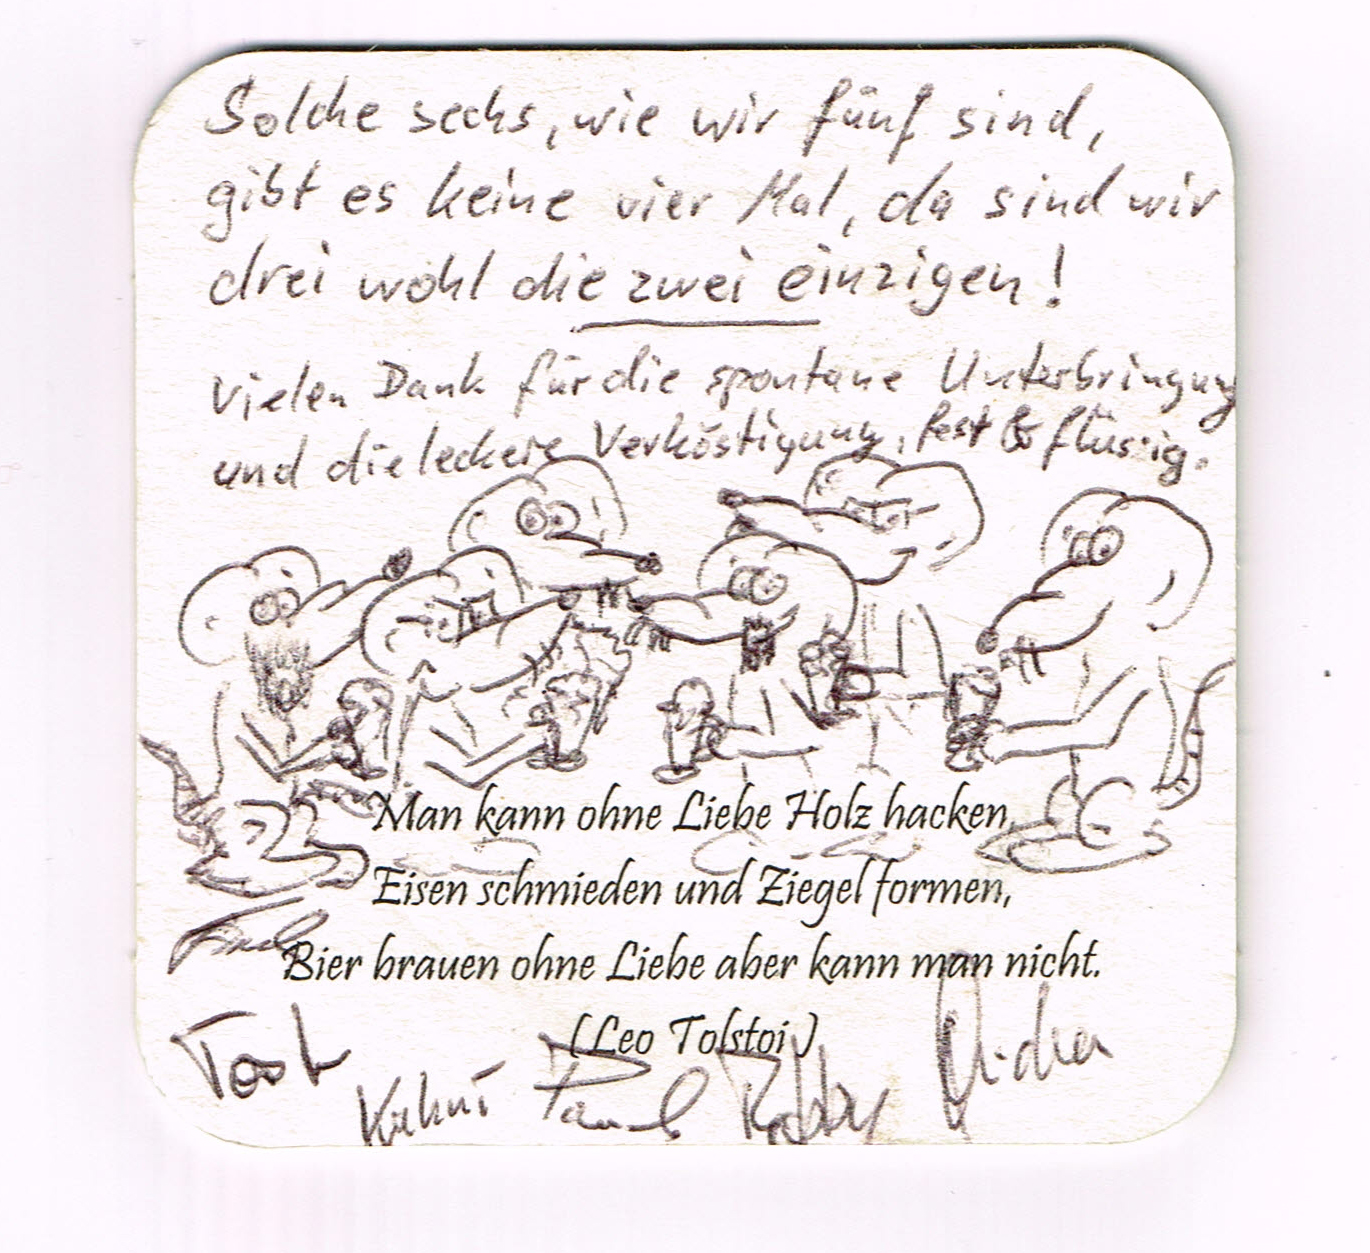 Solche sechs, wie wir fünf sind,
gibt es keine vier Mal, da sind wir
drei wohl die zwei einzigen!
Vielen Dank für die spontane Unterbringung
und die leckere Verköstigung, fest & flüssig.
Man kann ohne Liebe Holz hacken,
Eisen schmieden und Ziegel formen,
Bier brauen ohne Liebe aber kann man nicht.
(Leo Tolstoi)
Paul Robby